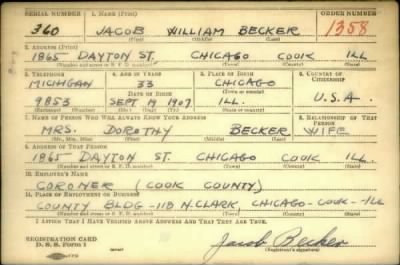 SERIAL NUMBER 1. NAME (Print) ORDER NUMBER
360 JACOB WILLIAM BECKER 1358
(First) (Middle) (Last)
2. ADDRESS (Print)
1865 DAYTON ST. CHICAGO COOK ILL
(Number and street or R. F. D. number) (Town) (County) (State)
3. TELEPHONE 4. AGE IN YEARS 5. PLACE OF BIRTH 6. COUNTRY OF CITIZENSHIP
MICHIGAN 33 CHICAGO
DATE OF BIRTH
9853 SEPT 19 1907 ILL. U.S.A.
7. NAME OF PERSON WHO WILL ALWAYS KNOW YOUR ADDRESS 8. RELATIONSHIP OF THAT PERSON
MRS. DOROTHY BECKER WIFE
(Mr., Mrs., Miss) (First) (Middle) (Last)
9. ADDRESS OF THAT PERSON
1865 DAYTON ST. CHICAGO COOK ILL.
(Number and street or R. F. D. number) (Town) (County) (State)
10. EMPLOYER'S NAME
CORONER (COOK COUNTY)
11. PLACE OF EMPLOYMENT OR BUSINESS
COUNTY BLDG - 118 N. CLARK, CHICAGO - COOK - ILL
(Number and street or R. F. D. number) (Town) (County) (State)
I AFFIRM THAT I HAVE VERIFIED ABOVE ANSWERS AND THAT THEY ARE TRUE.
REGISTRATION CARD
D. S. S. Form 1
Jacob Becker